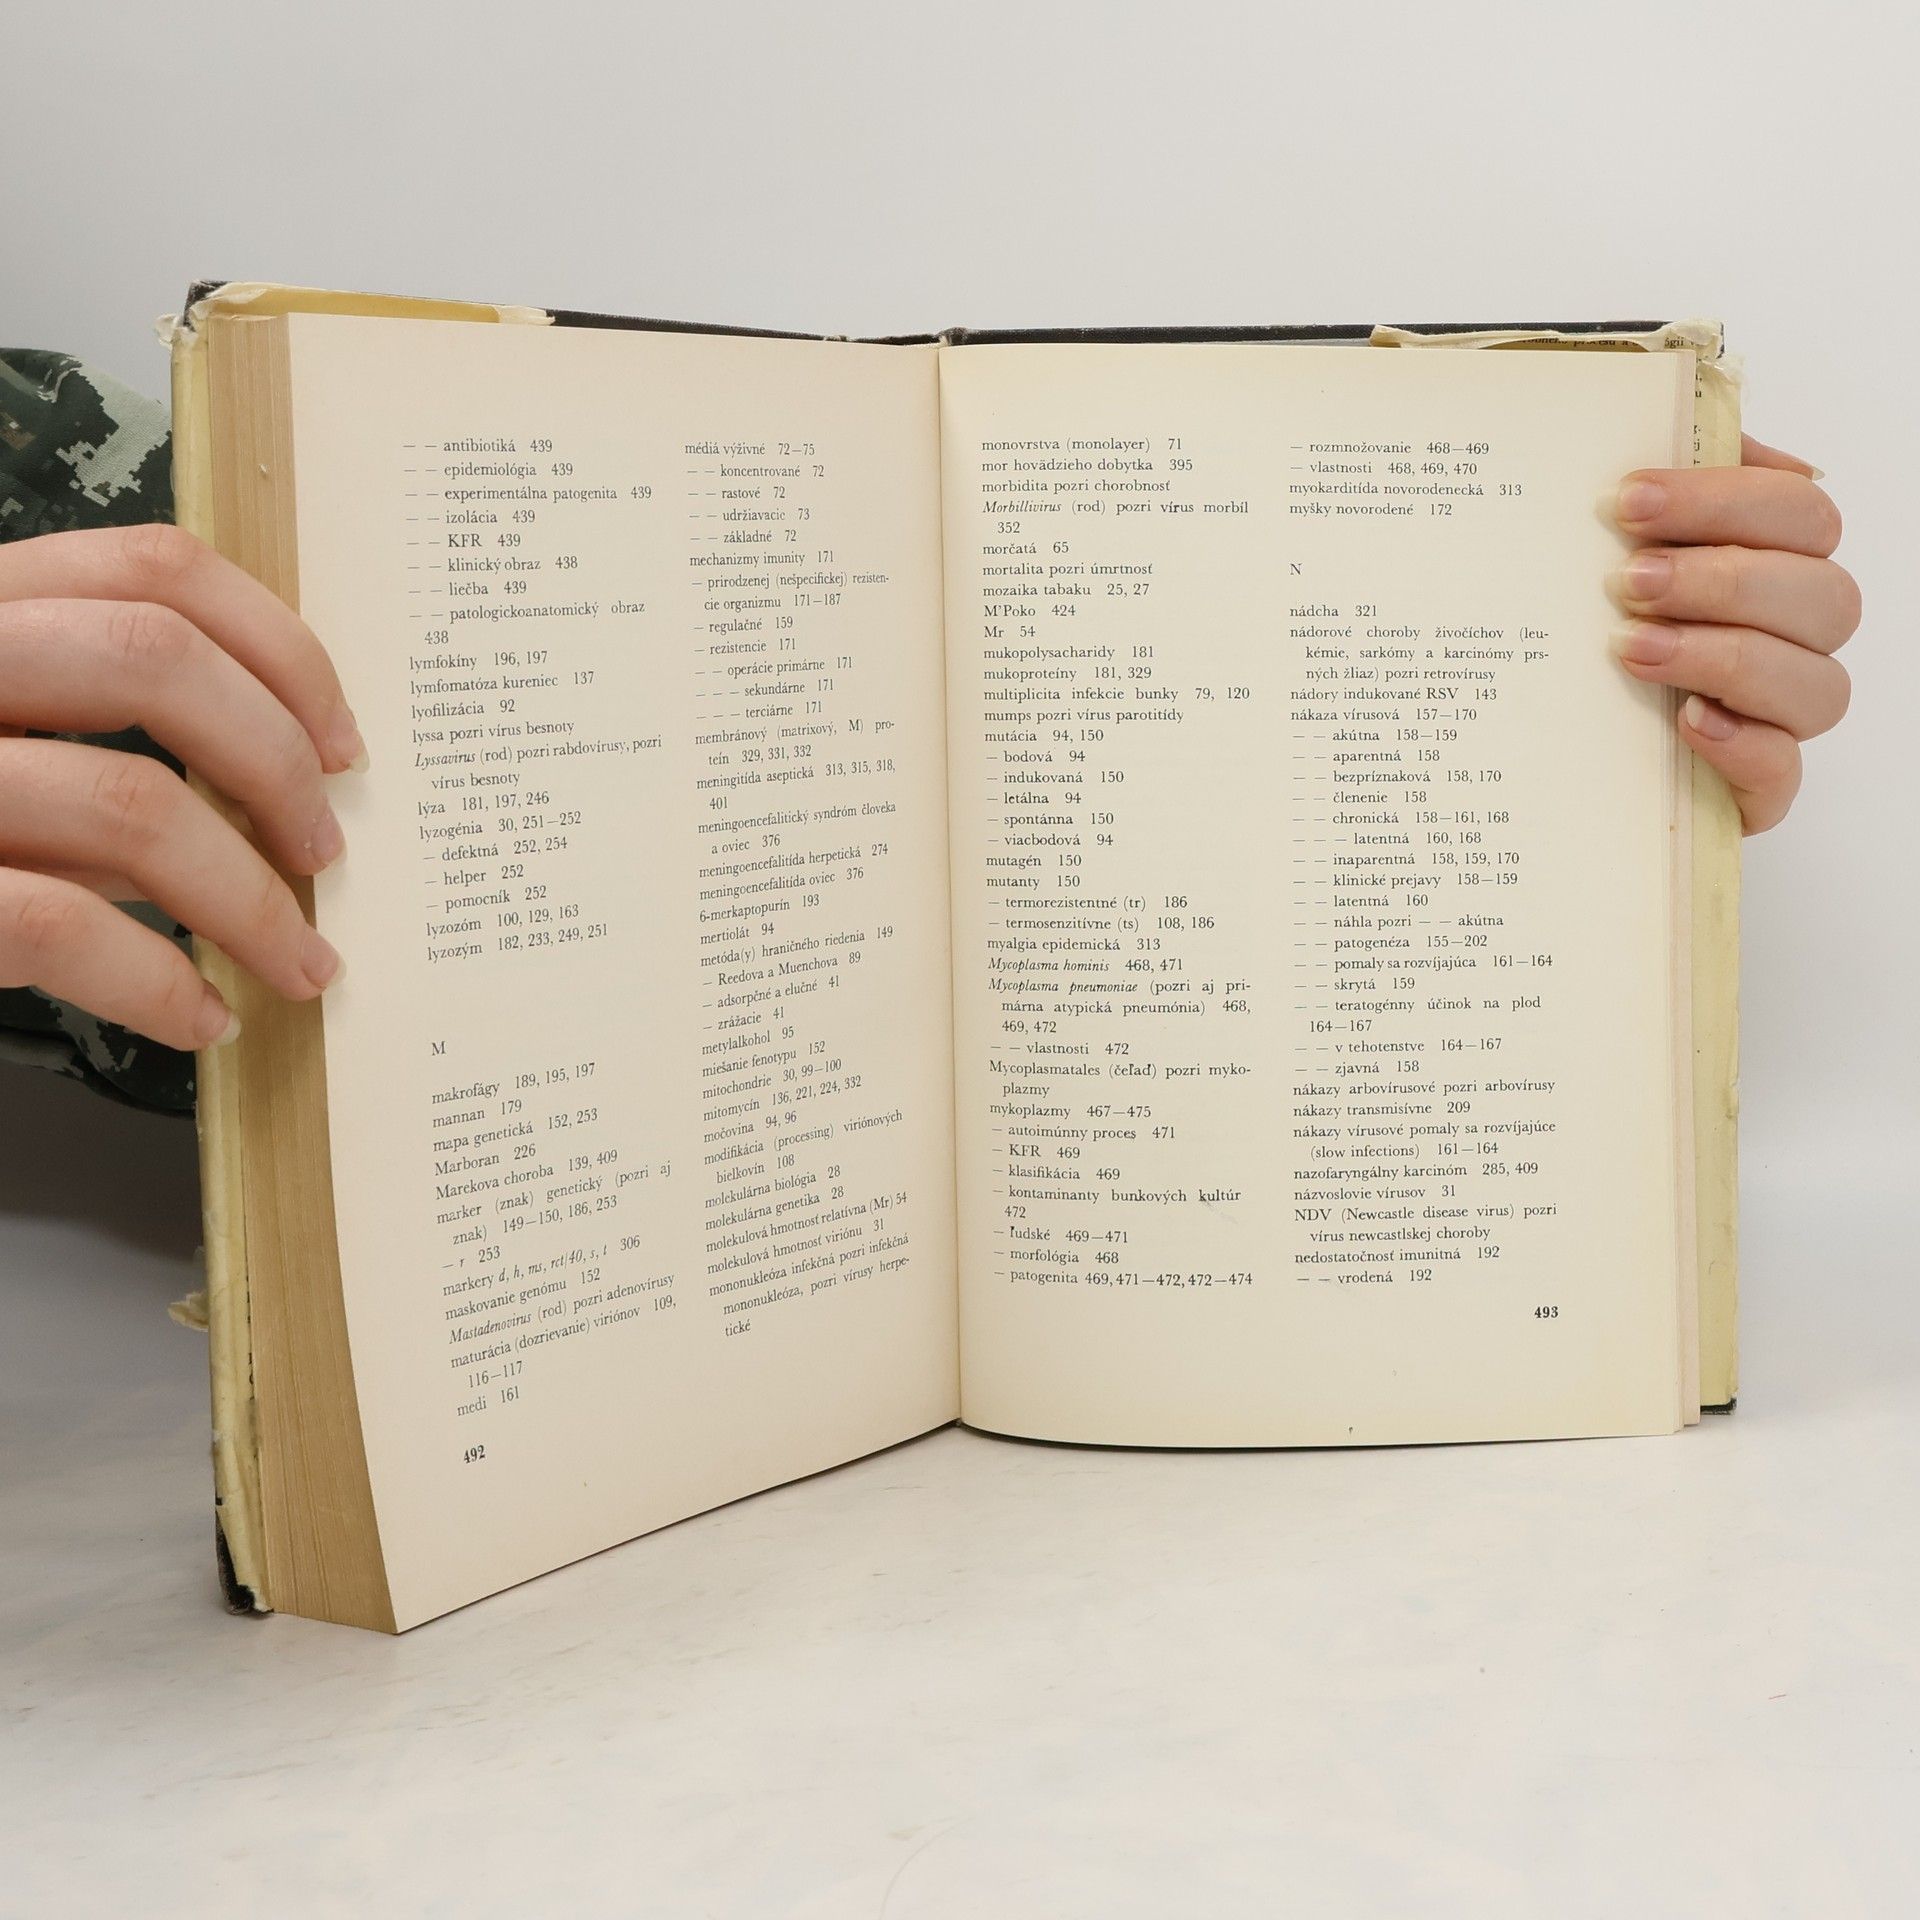 — — antibiotiká 439
— — epidemiológia 439
— — experimentálna patogenita 439
— — izolácia 439
— — KFR 439
— — klinický obraz 438
— — liečba 439
— — patologickoanatomický obraz
438
lymfokíny 196, 197
lymfomatóza kureniec 137
lyofilizácia 92
lyssa pozri vírus besnoty
Lyssavirus (rod) pozri rabdovírusy, pozri
vírus besnoty
lýza 181, 197, 246
lyzogénia 30, 251—252
— defektná 252, 254
— helper 252
— pomocník 252
lyzozóm 100, 129, 163
lyzozým 182, 233, 249, 251
M
makrofágy 189, 195, 197
mannan 179
mapa genetická 152, 253
Marboran 226
Marekova choroba 139, 409
marker (znak) genetický (pozri aj
znak) 149—150, 186, 253
— r 253
markery d, h, ms, rct/40, s, t 306
maskovanie genómu 152
Mastadenovirus (rod) pozri adenovírusy
maturácia (dozrievanie) viriónov 109,
116—117
medi 161
492
médiá výživné 72—75
— — koncentrované 72
— — rastové 72
— — udržiavacie 73
— — základné 72
mechanizmy imunity 171
— prirodzenej (nešpecifickej) rezisten-
cie organizmu 171—187
— regulačné 159
— rezistencie 171
— — operácie primárne 171
— — — sekundárne 171
— — — terciárne 171
membránový (matrixový, M) pro-
teín 329, 331, 332
meningitída aseptická 313, 315, 318,
401
meningoencefalitický syndróm človeka
a oviec 376
meningoencefalitída herpetická 274
meningoencefalitída oviec 376
6-merkaptopurín 193
mertiolát 94
metóda(y) hraničného riedenia 149
— Reedova a Muenchova 89
— adsorpčné a elučné 41
— zrážacie 41
metylalkohol 95
miešanie fenotypu 152
mitochondrie 30, 99—100
mitomycín 136, 221, 224, 332
močovina 94, 96
modifikácia (processing) viriónových
bielkovín 108
molekulárna biológia 28
molekulárna genetika 28
molekulová hmotnosť relatívna (Mr) 54
molekulová hmotnosť viriónu 31
mononukleóza infekčná pozri infekčná
mononukleóza, pozri vírusy herpe-
tické
monovrstva (monolayer) 71
mor hovädzieho dobytka 395
morbidita pozri chorobnosť
Morbillivirus (rod) pozri vírus morbíl
352
morčatá 65
mortalita pozri úmrtnosť
mozaika tabaku 25, 27
M'Poko 424
Mr 54
mukopolysacharidy 181
mukoproteíny 181, 329
multiplicita infekcie bunky 79, 120
mumps pozri vírus parotitídy
mutácia 94, 150
— bodová 94
— indukovaná 150
— letálna 94
— spontánna 150
— viacbodová 94
mutagén 150
mutanty 150
— termorezistentné (tr) 186
— termosenzitívne (ts) 108, 186
myalgia epidemická 313
Mycoplasma hominis 468, 471
Mycoplasma pneumoniae (pozri aj pri-
márna atypická pneumónia) 468,
469, 472
— — vlastnosti 472
Mycoplasmatales (čeľaď) pozri myko-
plazmy
mykoplazmy 467—475
— autoimúnny proces 471
— KFR 469
— klasifikácia 469
— kontaminanty bunkových kultúr
472
— ľudské 469—471
— morfológia 468
— patogenita 469, 471—472, 472—474
— rozmnožovanie 468—469
— vlastnosti 468, 469, 470
myokarditída novorodenecká 313
myšky novorodené 172
N
nádcha 321
nádorové choroby živočíchov (leu-
kémie, sarkómy a karcinómy prs-
ných žliaz) pozri retrovírusy
nádory indukované RSV 143
nákaza vírusová 157—170
— — akútna 158—159
— — aparentná 158
— — bezpríznaková 158, 170
— — členenie 158
— — chronická 158—161, 168
— — — latentná 160, 168
— — inaparentná 158, 159, 170
— — klinické prejavy 158—159
— — latentná 160
— — náhla pozri — — akútna
— — patogenéza 155—202
— — pomaly sa rozvíjajúca 161—164
— — skrytá 159
— — teratogénny účinok na plod
164—167
— — v tehotenstve 164—167
— — zjavná 158
nákazy arbovírusové pozri arbovírusy
nákazy transmisívne 209
nákazy vírusové pomaly sa rozvíjajúce
(slow infections) 161—164
nazofaryngálny karcinóm 285, 409
názvoslovie vírusov 31
NDV (Newcastle disease virus) pozri
vírus newcastlskej choroby
nedostatočnosť imunitná 192
— — vrodená 192
493